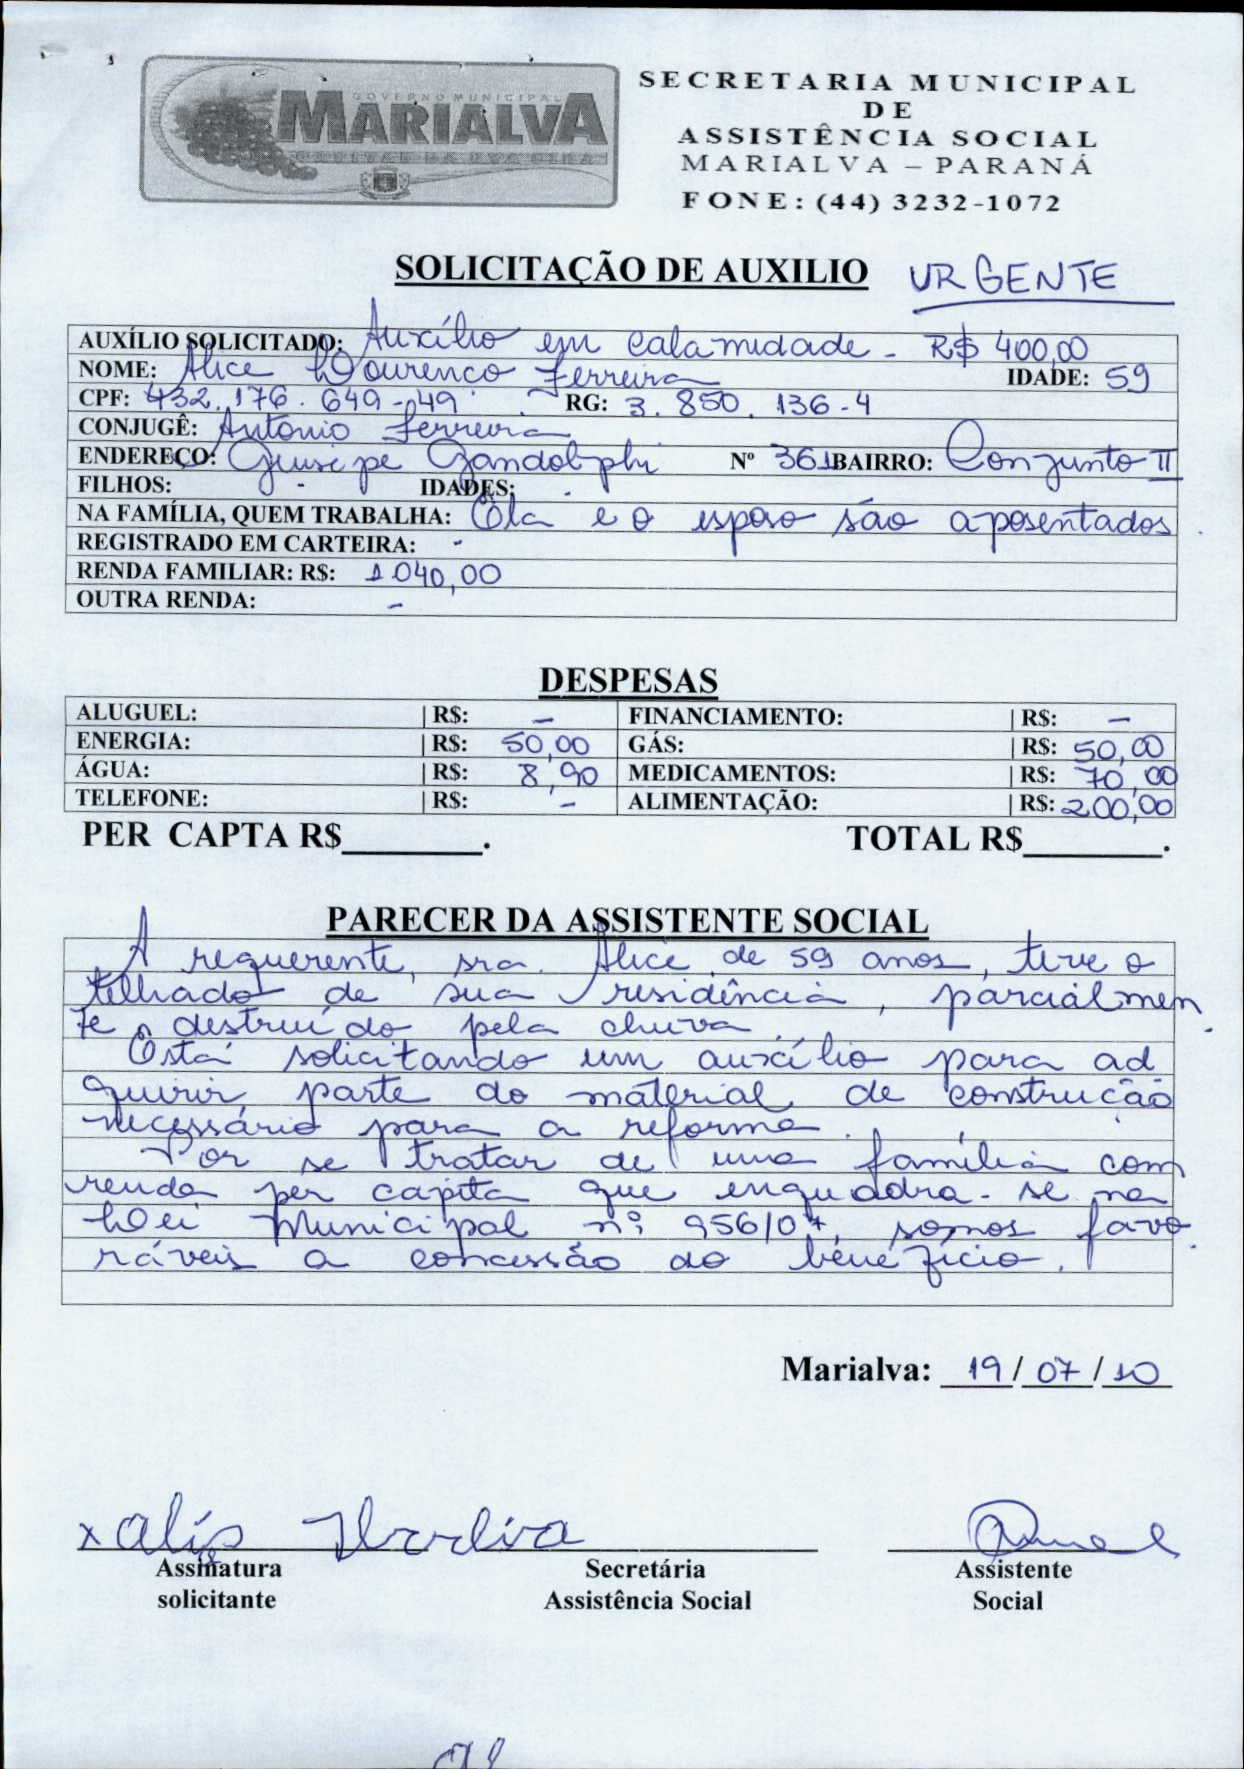 GOVERNO MUNICIPAL
MARIALVA
CAPITAL DA UVA FINA
SECRETARIA MUNICIPAL
DE
ASSISTÊNCIA SOCIAL
MARIALVA – PARANÁ
FONE: (44) 3232-1072
SOLICITAÇÃO DE AUXILIO URGENTE
AUXÍLIO SOLICITADO: Auxílio em calamidade - R$ 400,00
NOME: Alice Lourenco Ferreira IDADE: 59
CPF: 432.176.649-49 RG: 3.850.136-4
CONJUGÊ: Antonio Ferreira
ENDEREÇO: Giusepe Zandolphi Nº 361 BAIRRO: Conjunto II
FILHOS: - IDADES: -
NA FAMÍLIA, QUEM TRABALHA: Ela e o esposo são aposentados.
REGISTRADO EM CARTEIRA: -
RENDA FAMILIAR: R$: 1040,00
OUTRA RENDA: -
DESPESAS
ALUGUEL: R$: - FINANCIAMENTO: R$: -
ENERGIA: R$: 50,00 GÁS: R$: 50,00
ÁGUA: R$: 8,90 MEDICAMENTOS: R$: 70,00
TELEFONE: R$: - ALIMENTAÇÃO: R$: 200,00
PER CAPTA R$________. TOTAL R$________.
PARECER DA ASSISTENTE SOCIAL
A requerente, sra. Alice de 59 anos, teve o
telhado de sua residência, parcialmen
te destruído pela chuva.
Está solicitando um auxílio para ad
quirir parte do material de construção
necessário para a reforma.
Por se tratar de uma família com
renda per capita que enquadra-se na
Lei Municipal nº 956/07, somos favo
ráveis a concessão do benefício.
Marialva: 19/07/10
x Alice
Assinatura Secretária Assistente
solicitante Assistência Social Social